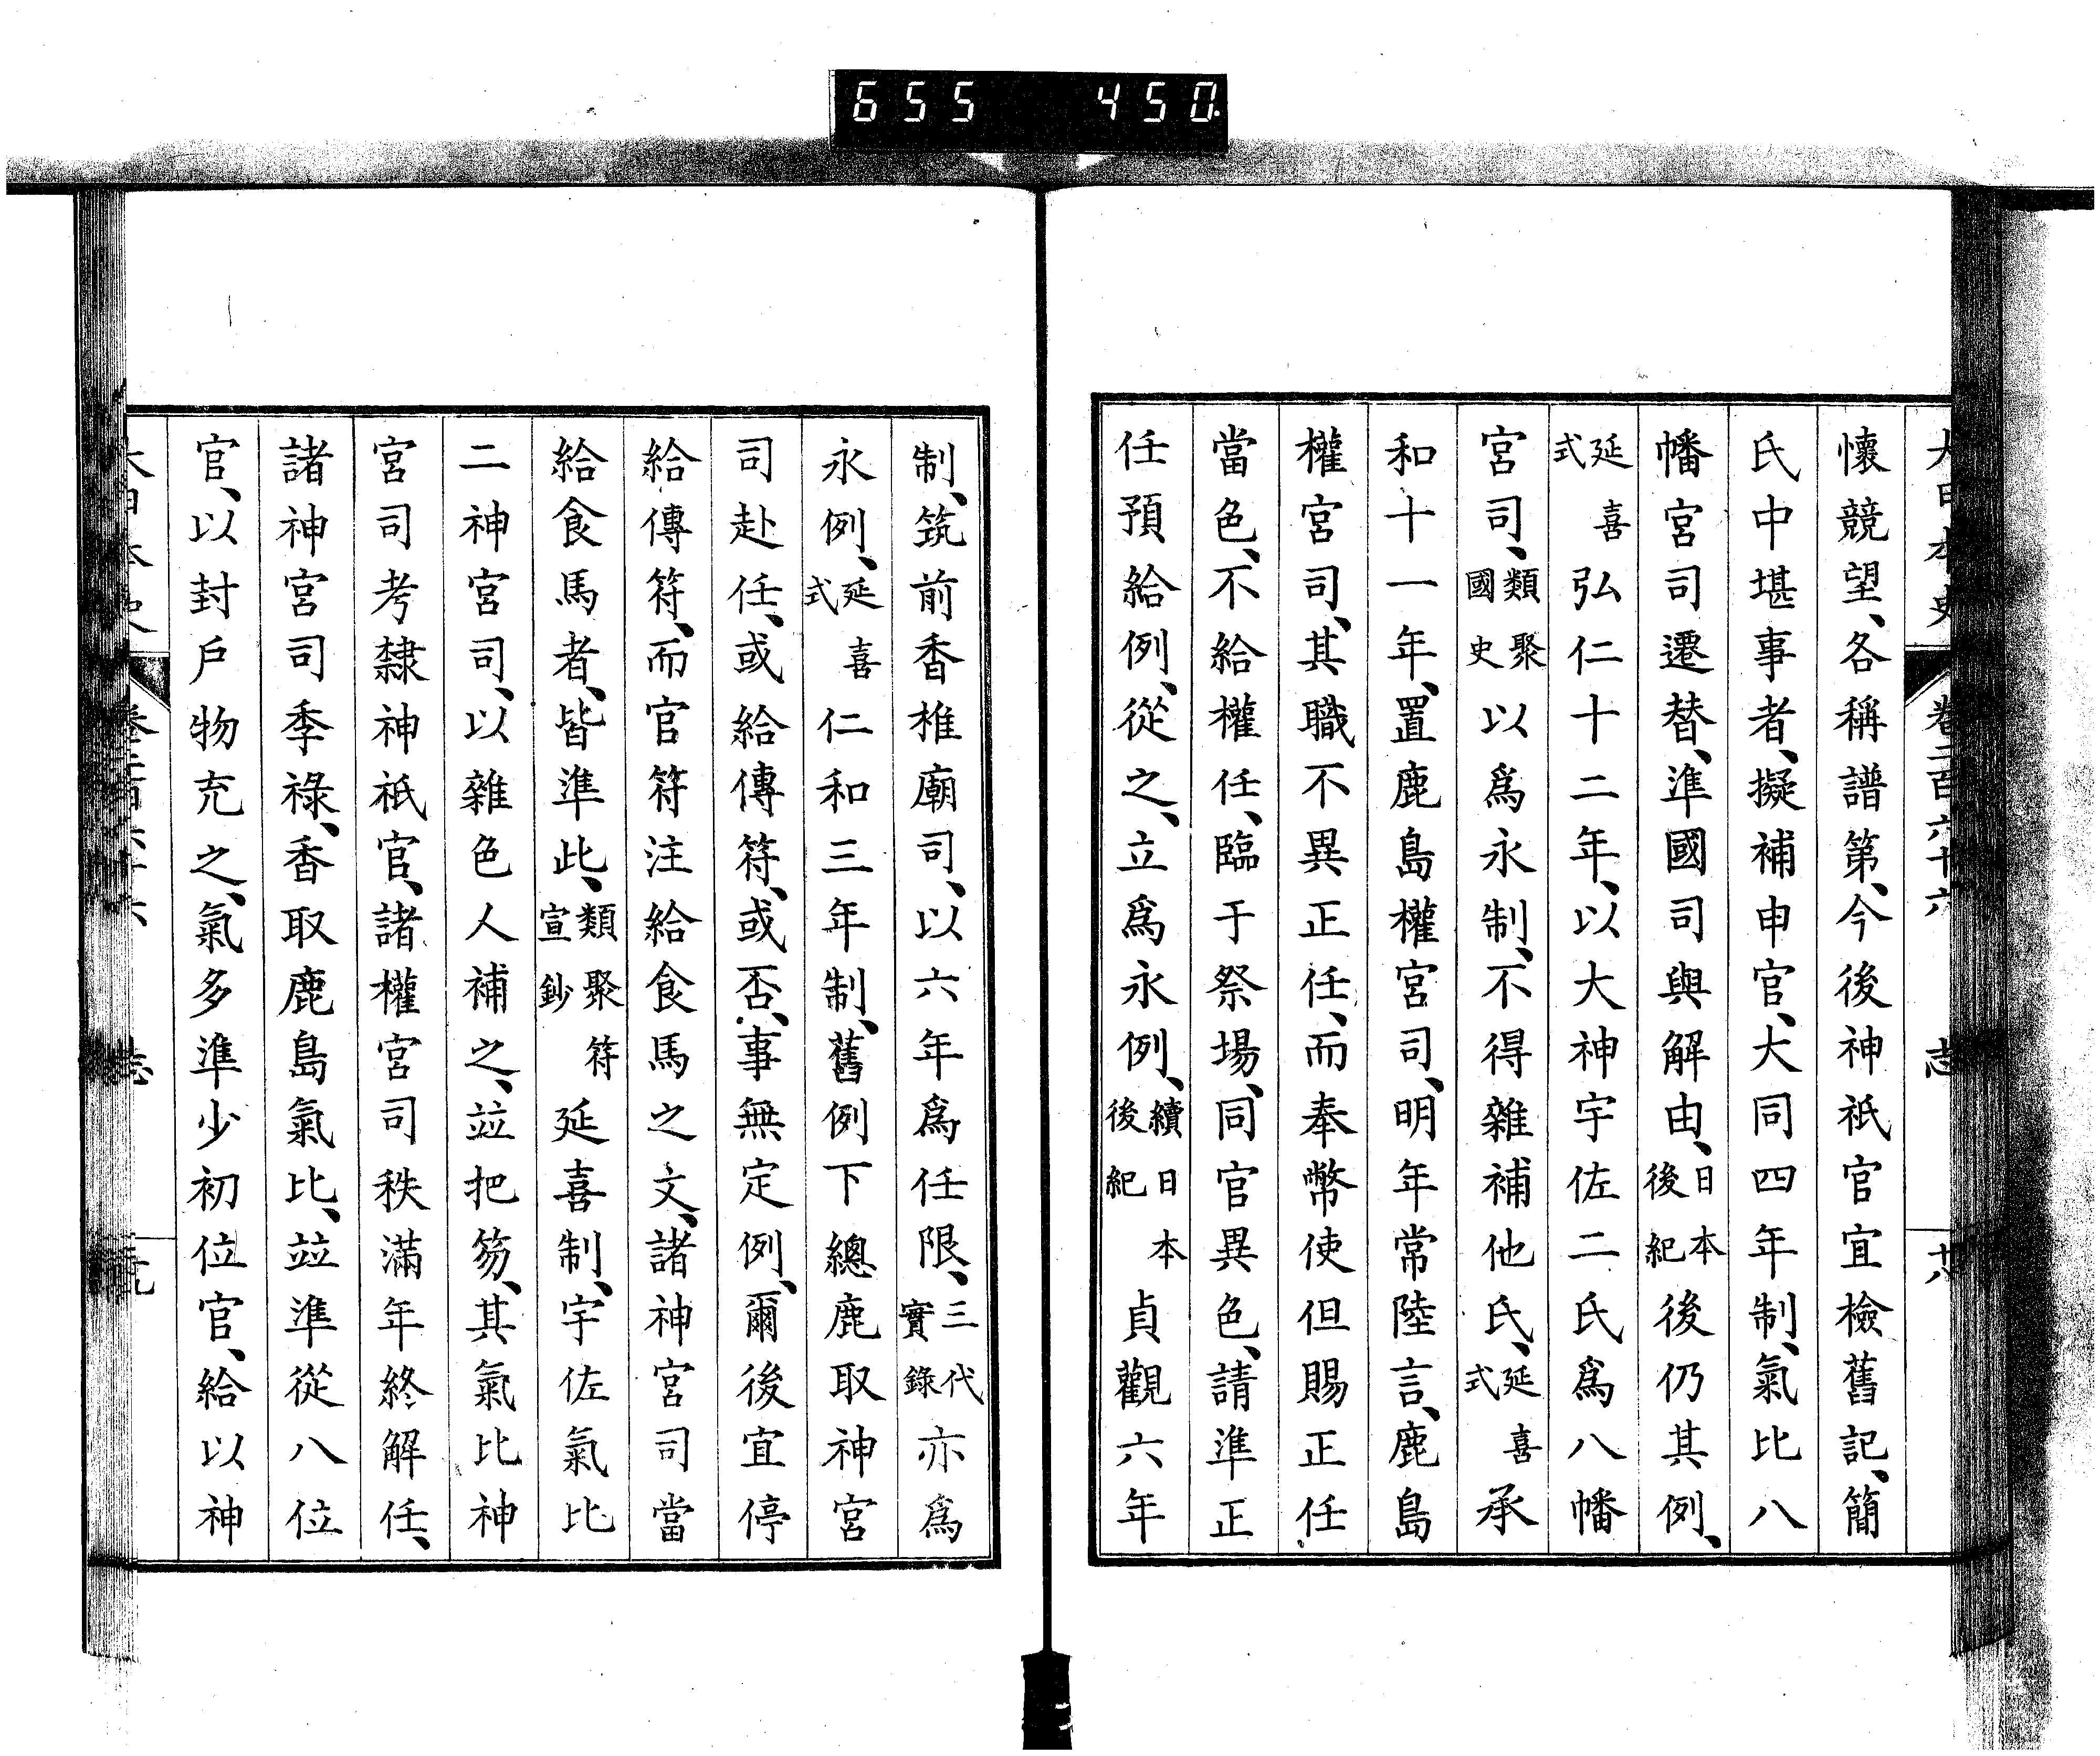 655 450.
大日本史 卷二百六十六 志 廿八
懷競望、各稱譜第、今後神祇官宜檢舊記、簡
氏中堪事者、擬補申官、大同四年制、氣比八
幡宮司遷替、準國司與解由、日本後紀後仍其例、
延喜式弘仁十二年、以大神宇佐二氏爲八幡
宮司、類聚國史以爲永制、不得雜補他氏、延喜式承
和十一年、置鹿島權宮司、明年常陸言、鹿島
權宮司、其職不異正任、而奉幣使但賜正任
當色、不給權任、臨于祭場、同官異色、請準正
任預給例、從之、立爲永例、續日本後紀貞觀六年
制、筑前香椎廟司、以六年爲任限、三代實錄亦爲
永例、延喜式仁和三年制、舊例下總鹿取神宮
司赴任、或給傳符、或否、事無定例、爾後宜停
給傳符、而官符注給食馬之文、諸神宮司當
給食馬者、皆準此、類聚符宣鈔延喜制、宇佐氣比
二神宮司、以雜色人補之、竝把笏、其氣比神
宮司考隸神祇官、諸權宮司秩滿年終解任、
諸神宮司季祿、香取鹿島氣比、竝準從八位
官、以封戶物充之、氣多準少初位官、給以神
大日本史 卷二百六十六 志